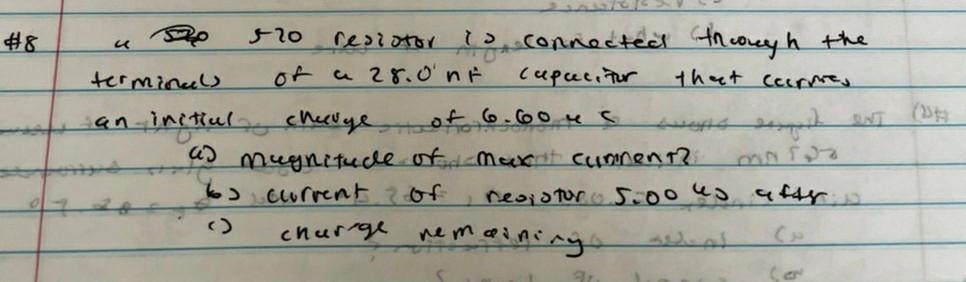 #8 a 520 resistor is connected through the
terminals of a 28.0 nF capacitor that carries
an initial charge of 6.60 u c
a) magnitude of max current?
b) current of resistor 5.00 us after
c) charge remaining